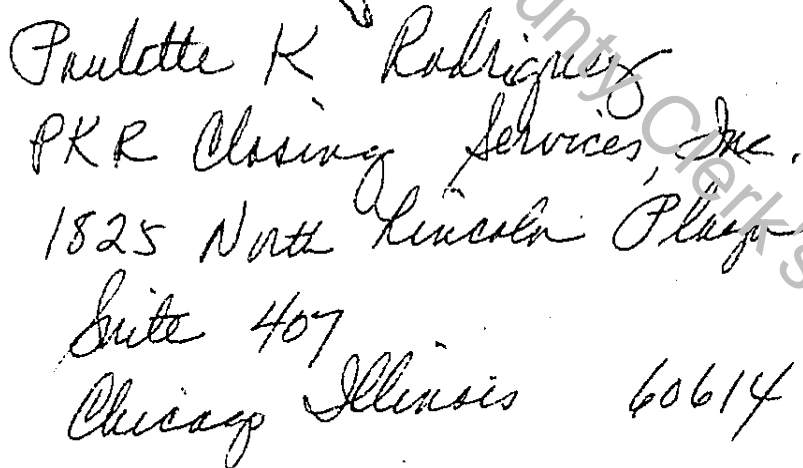 Paulette K Rodriguez
PKR Closing Services, Inc.
1825 North Lincoln Plaza
Suite 407
Chicago Illinois 60614
unty Clerk's